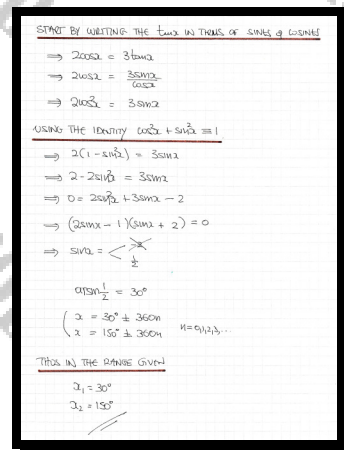 START BY WRITING THE tanx IN TERMS OF SINES & COSINES
⇒ 2cosx = 3tanx
⇒ 2cosx = 3sinx/cosx
⇒ 2cos²x = 3sinx
USING THE IDENTITY cos²x + sin²x ≡ 1
⇒ 2(1 - sin²x) = 3sinx
⇒ 2 - 2sin²x = 3sinx
⇒ 0 = 2sin²x + 3sinx - 2
⇒ (2sinx - 1)(sinx + 2) = 0
⇒ sinx = < -2
1/2
arcsin 1/2 = 30°
( x = 30° ± 360n
( x = 150° ± 360n n=0,1,2,3,...
THUS IN THE RANGE GIVEN
x₁ = 30°
x₂ = 150°